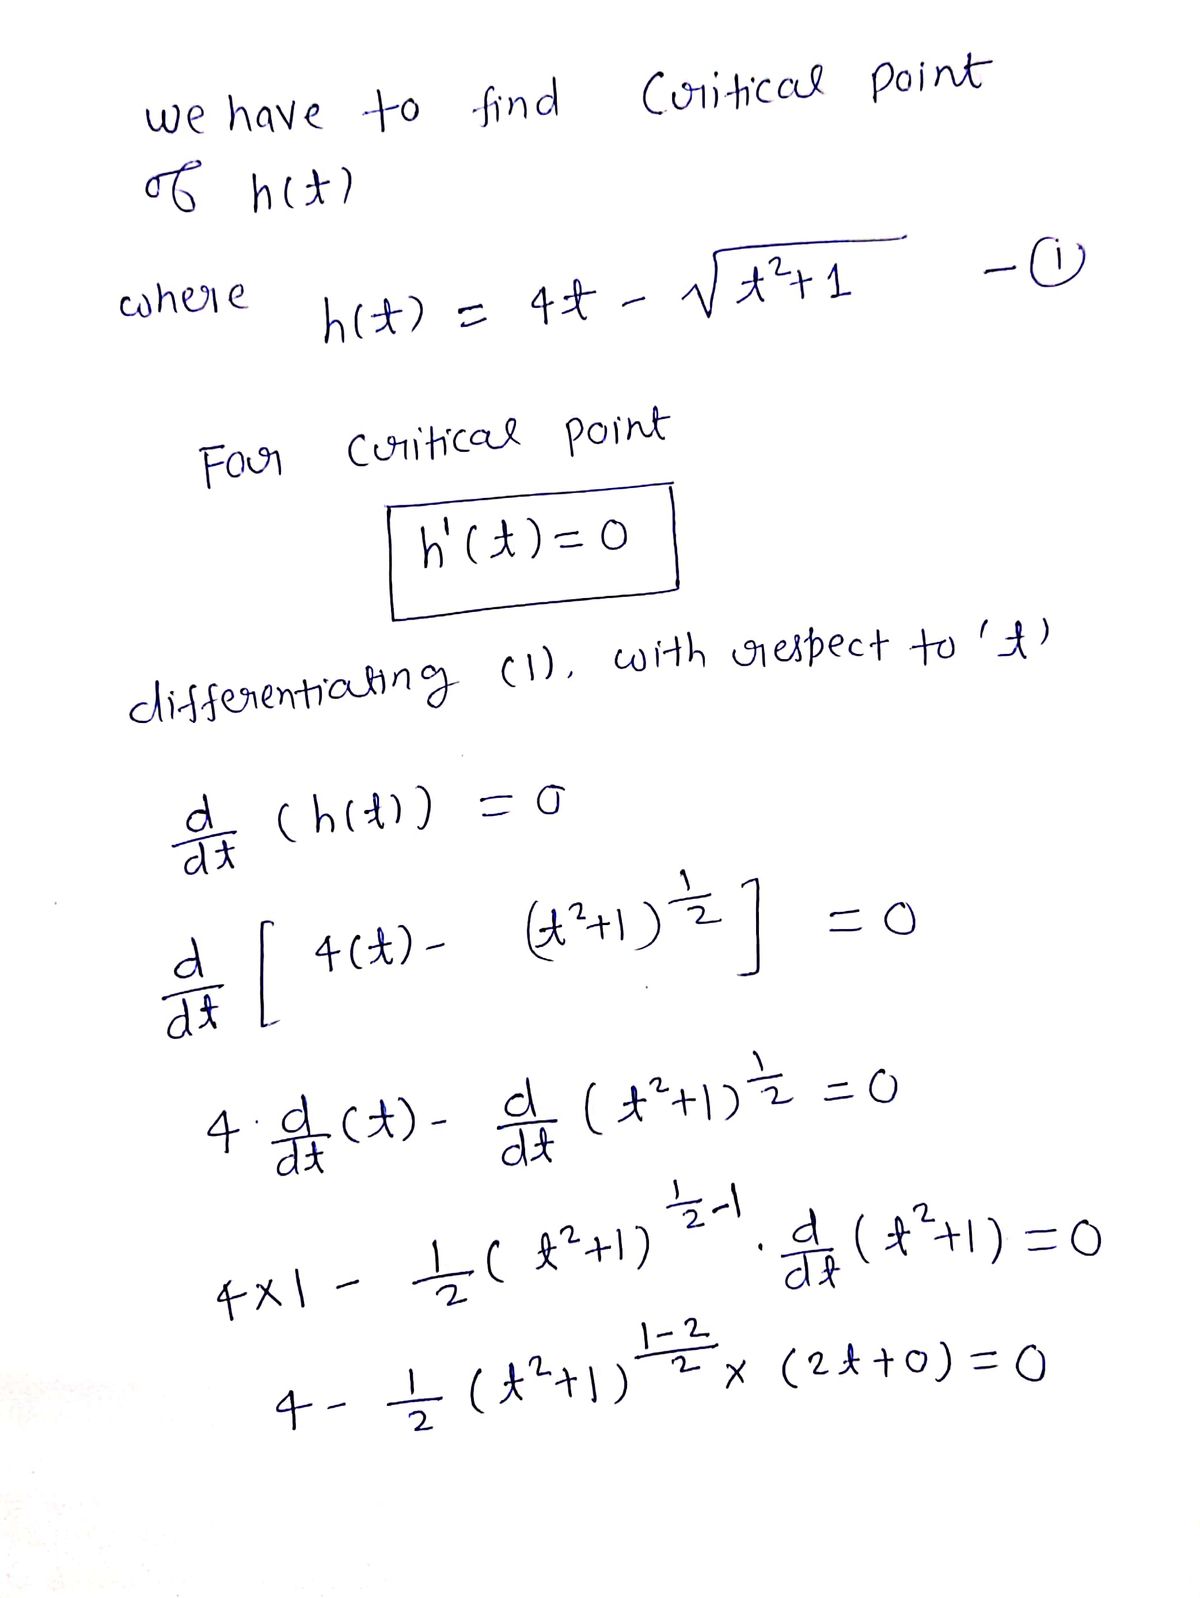 we have to find Critical point
of h(t)
where h(t) = 4t - √(t²+1) - ①
For Critical point
h'(t) = 0
differentiating (1), with respect to 't'
d/dt (h(t)) = 0
d/dt [ 4(t) - (t²+1)^(1/2) ] = 0
4 · d/dt (t) - d/dt (t²+1)^(1/2) = 0
4×1 - 1/2 (t²+1)^(1/2 - 1) · d/dt (t²+1) = 0
4 - 1/2 (t²+1)^((1-2)/2) × (2t+0) = 0